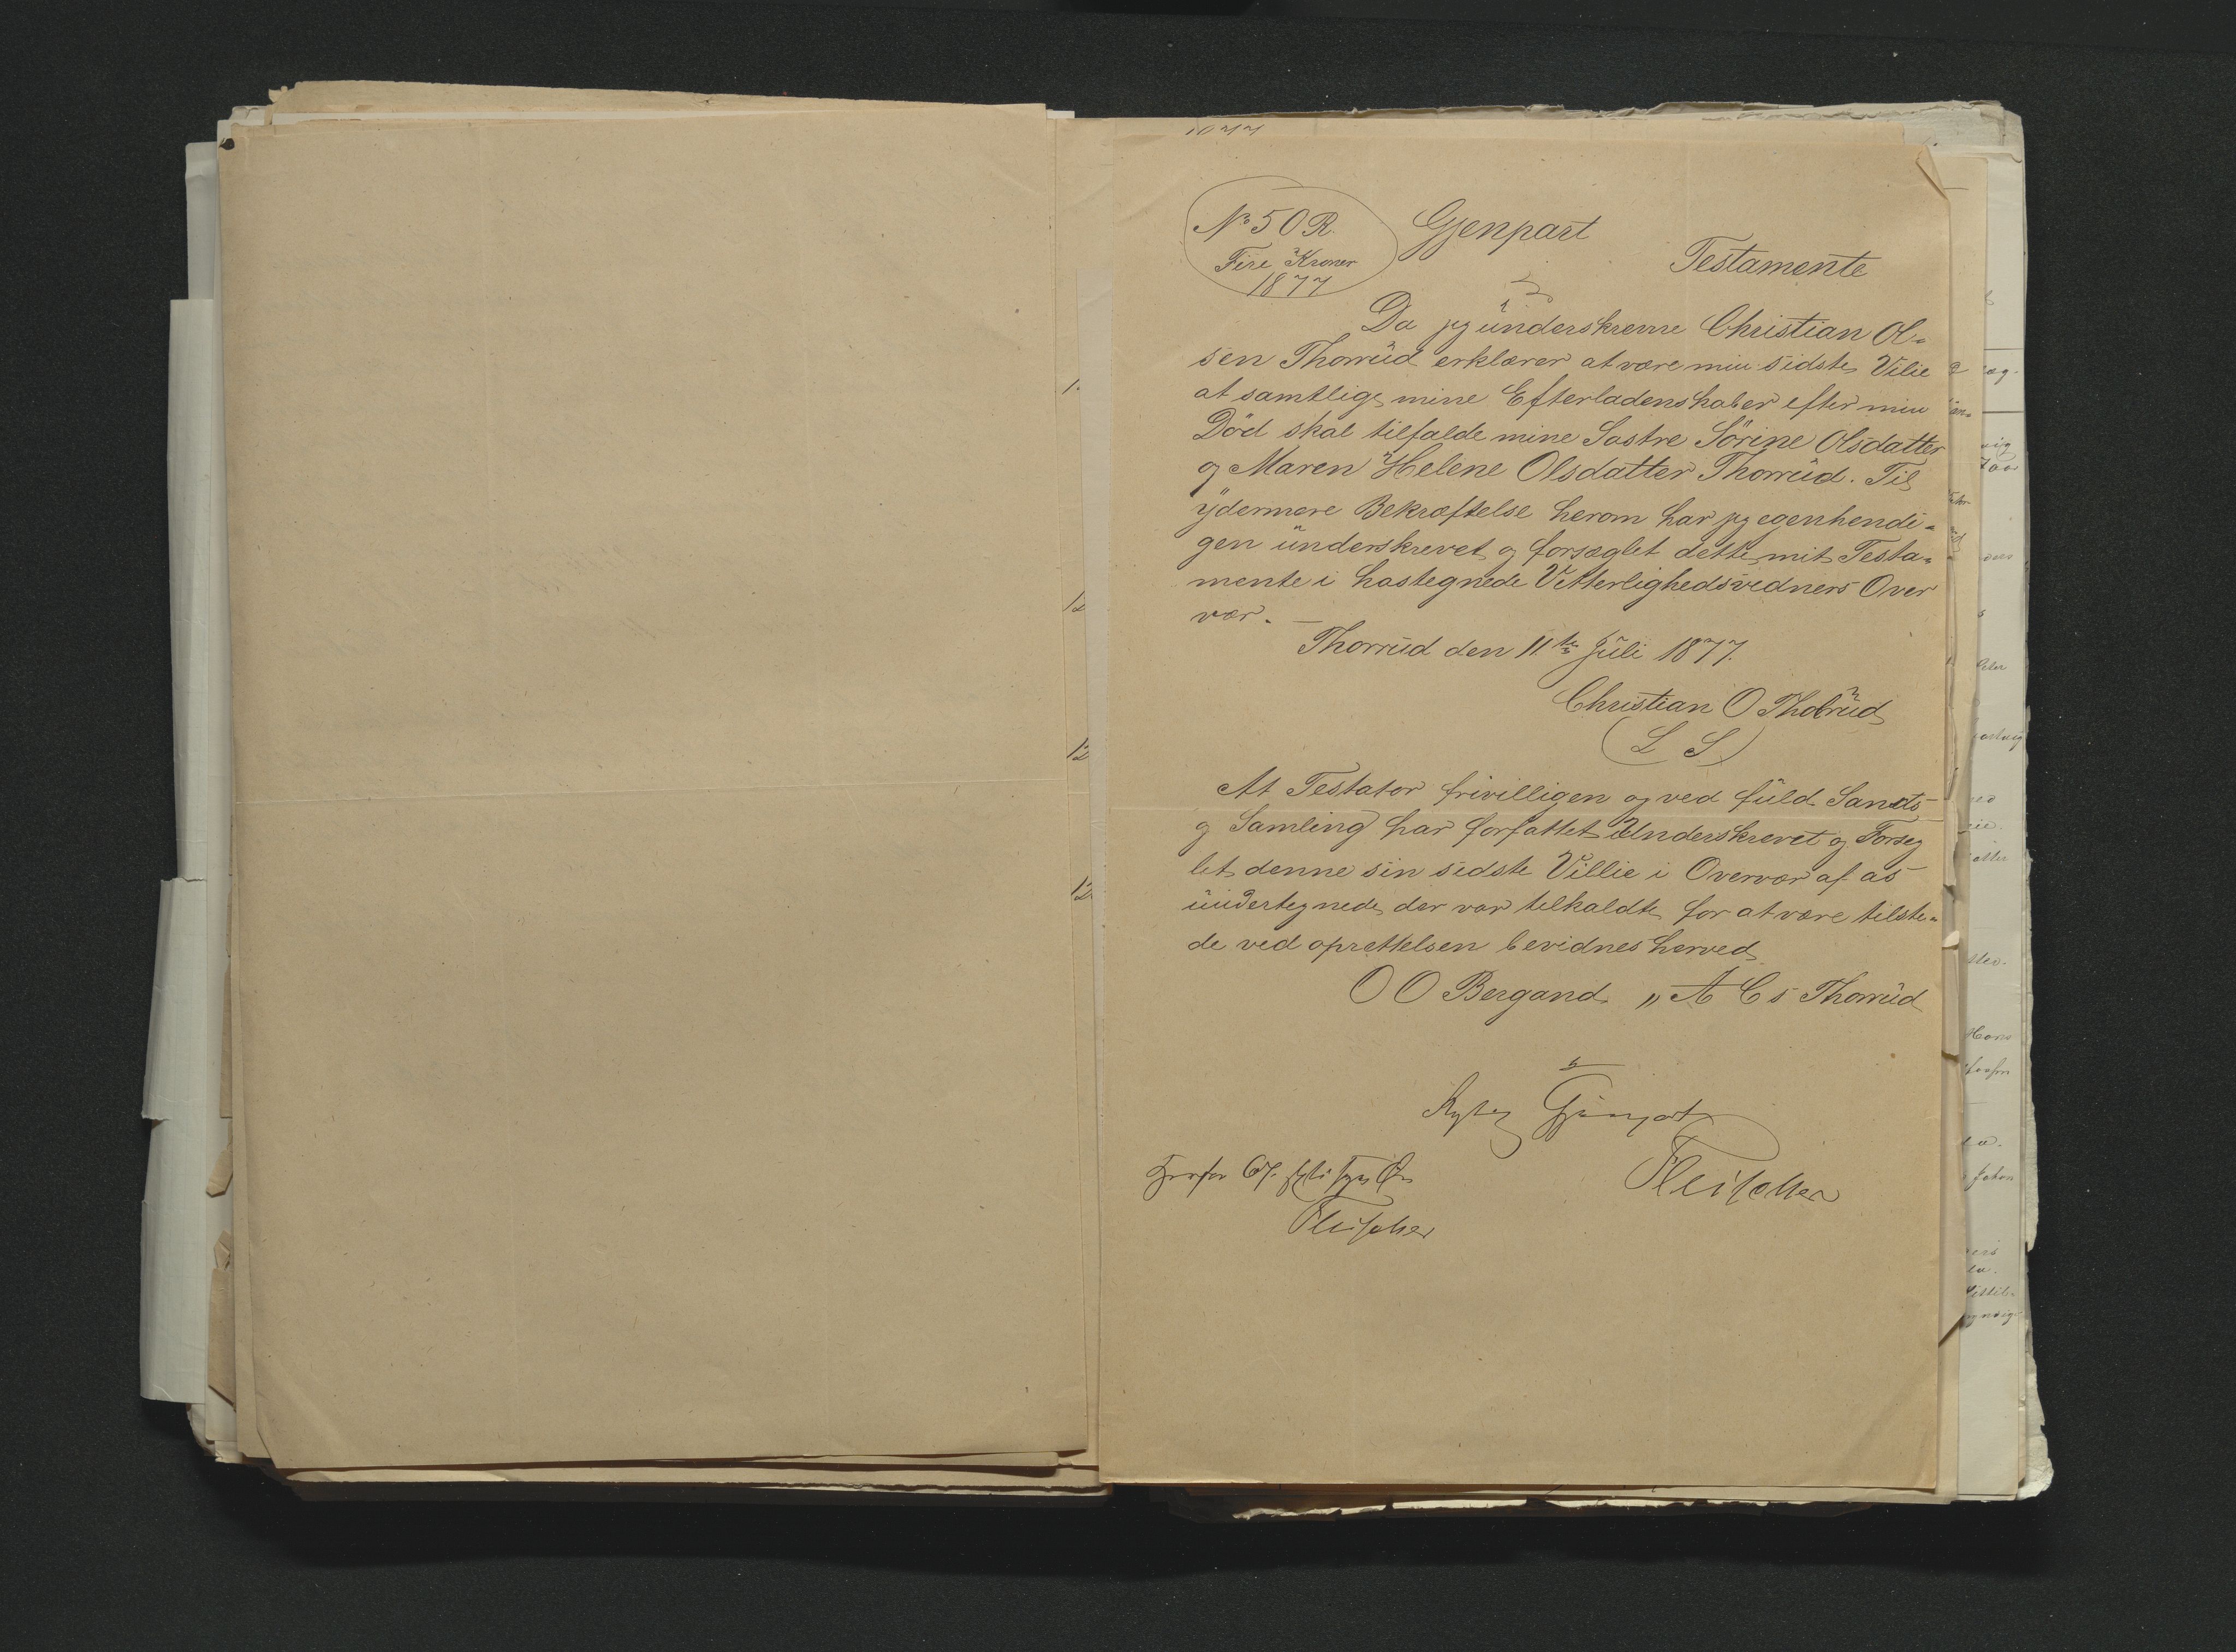 1877
No 50 R.
Fire Kroner
1877
Gjenpart
Testamente
Da jeg underskrevne Christian Ol-
sen Thorrud erklærer at være min sidste Vilie
at samtlige mine Efterladenskaber efter min
Död skal tilfalde mine Søstre Sörine Olsdatter
og Maren Helene Olsdatter Thorrud. Til
ydermere Bekræftelse herom har jeg egenhendi-
gen underskrevet og forseglet dette mit Testa-
mente i hostegnede Vitterlighedsvidners Over
vær. -
Thorrud den 11te Juli 1877.
Christian O Thorrud
(L S)
At Testator frivilligen og ved fuld Sands
og Samling har forfattet Underskrevet og Forseg
let denne sin sidste Villie i Overvær af os
undertegnede der var tilkaldte for at være tilste-
de ved oprettelsen bevidnes herved
O O Bergand. " A C s Thorrud
Rigtig Gjenpart
Fleischer
Fleischer